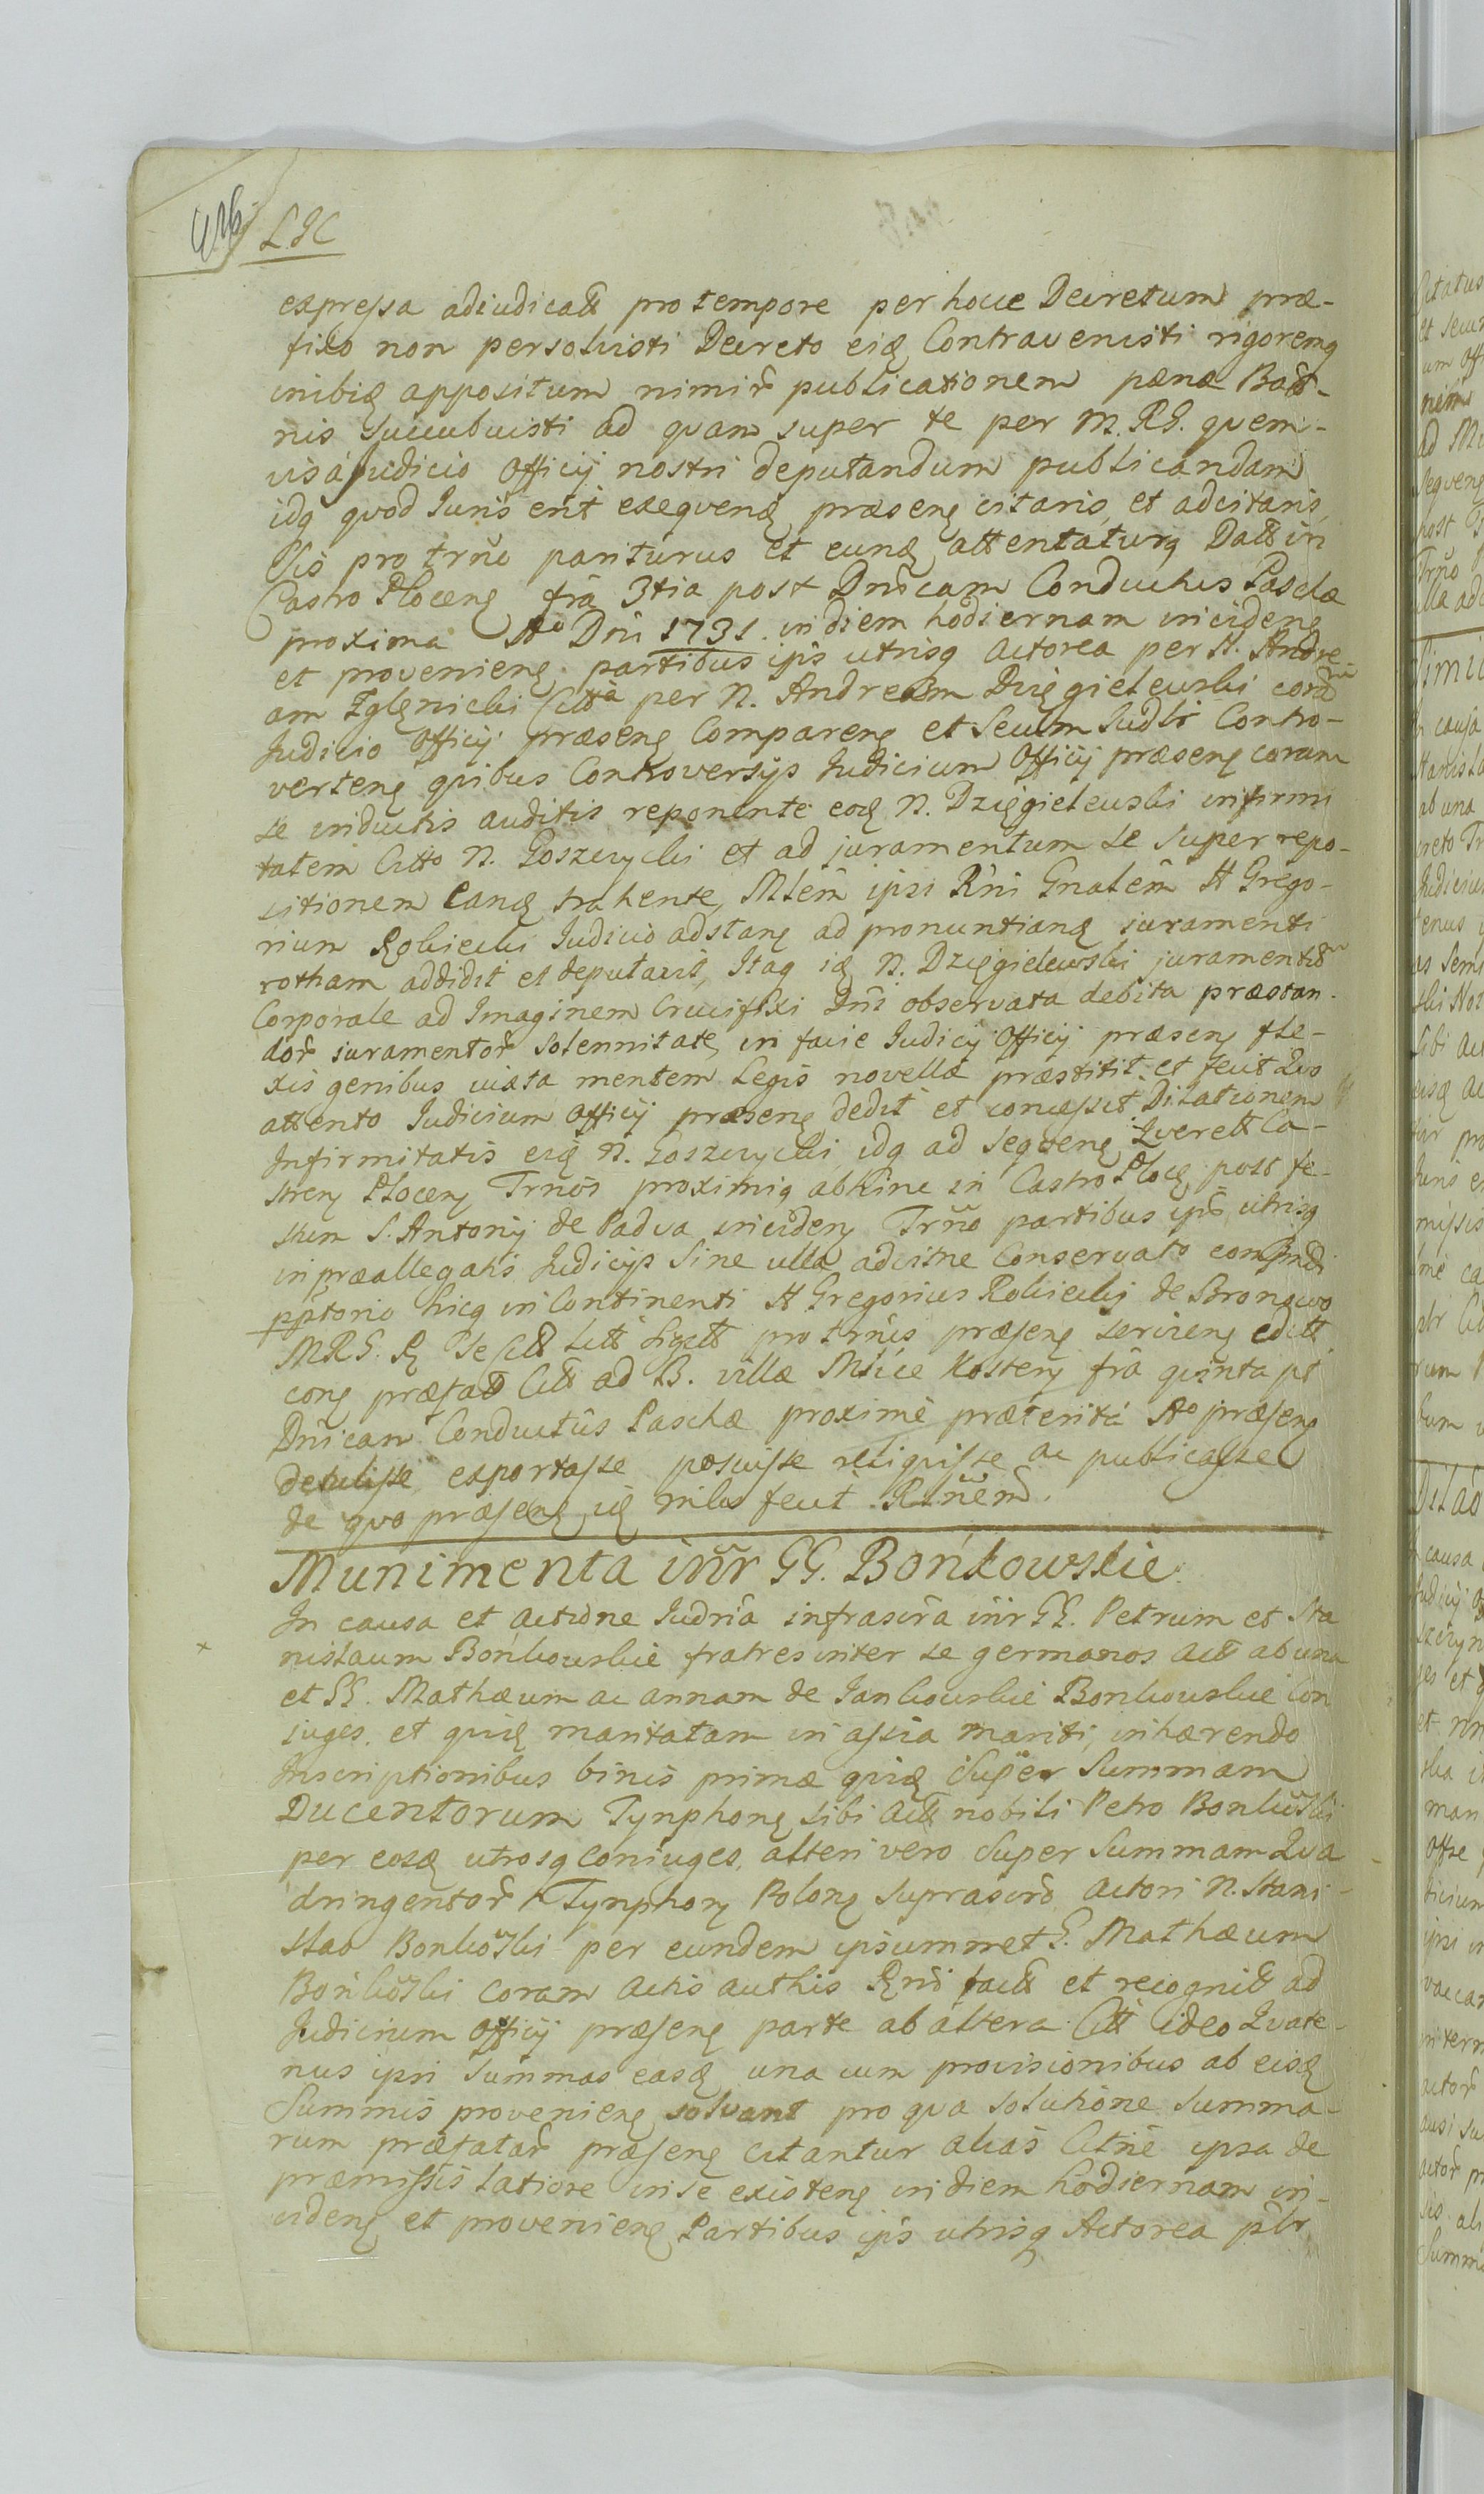 L.J.C
expressa adiudicatt pro tempore per hocce Decretum præ-
fixo non persolvisti Decreto eiđ Contravenisti rigoremq
inibiđ appositum nimir̃ publicationem pænæ Bañ-
nis Succubuisti ad quam super te per M. RG. quem-
vis à Judicio Officij nostri deputandum publicandam
idq quod Juris erit exequenđ præsenę citaris, et adcitaris
Sis pro trño pariturus et eunđ attentaturq Datt in
Castro Plocenę fra 3tia post Dnicam Conductus Paschæ
proxima Aº Dni 1731. in diem hodiernam incidenę
et provenienę partibus ipis utrisq Actorea per N. Andre-
am Zglenicki Citta per N. Andream Dzięgielewski coram
Judicio Officij præsenę Comparenę et Secum Judlr Contro-
vertenę quibus Controversijs Judicium Officij præsenę coram
se inductis auditis reponente eođ N. Dzięgielewski infirmi
tatem Citto N. Goszczycki et ad juramentum se super repo-
sitionem eanđ trahente, Mtem ipsi Rñi Gnalem N Grego-
rium Rokicki Judicio adstanę ad pronuntianđ juramenti
rotham addidit et deputavit, Itaq iđ N. Dzięgielewski juramentum
Corporale ad Imaginem Crucifixi Dni observata debita præstan-
dor̃ juramentor̃ solennitate, in facie Judicij Officij præsenę fle-
xis genibus iuxta mentem Legis novellæ præstitit et fecit Quo
attento Judicium Officij præsenę dedit et concessit Dilationem
Infirmitatis eiđ N. Goszczycki idq ad Sequenę Querell Ca-
strenę Plocenę Trnos proximiq abhinc in Castro Ploc. post fe-
stum S. Antonij de Padua incidenę Trño partibus ipis utrisq
in præallegatis Judicijs Sine ulla adcitne Conservato
pptorio hicq in Continenti N Gregorius Rokicki de Brongwo
MRG. R Se Citt Litt Sigill pro trñis præsenę servienę editt
conę præfatt Citt ad B. villæ Msciec Kostery fra quinta pt
Dnicam Conductus Paschæ proximè præterita Aº præsenę
detulisse exportasse posuisse reliquisse ac publicasse
de quo præsenę iđ mlis fecit Rtñem.
Munimenta inr GG. Bońkowskie
In causa et actione Judria infrascra inr GG. Petrum et Sta
nislaum Bońkowskie fratres inter se germanos Actt ab una
et GG. Mathæum ac annam de Jankowskie Bonkowskie Con
juges, et quiđ maritatam in assia mariti, inhærendo
Inscriptionibus binis primæ quiđ Super Summam
Ducentorum Tynphonę sibi Actt nobili Petro Bonkowski
per eosđ utrosq coniuges, alteri vero Super Summam Qua
dringentor̃ Tynphonę Polonę Suprascro Actori N. Stani-
slao Bonkowski per eundem ipsummet G. Mathæum
Bońkowski coram Actis authis factt et recognitt ad
Judicium Officij præsenę parte ab altera Citt ideo Quate-
nus ipsi Summas easđ una cum provisionibus ab eisđ
Summis provenienę solvant pro qua solutione Summa-
rum præfatar̃ præsenę citantur alias Citne ipsa de
præmissis latiore inse existenę in diem hodiernam in-
cidenę et provenienę Partibus ipis utrisq Actorea plr